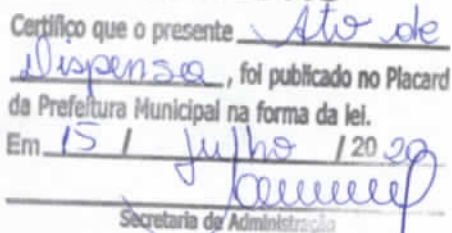 Certifico que o presente Ato de
Dispensa, foi publicado no Placard
da Prefeitura Municipal na forma da lei.
Em 15 / Julho / 20 20
Secretaria de Administração